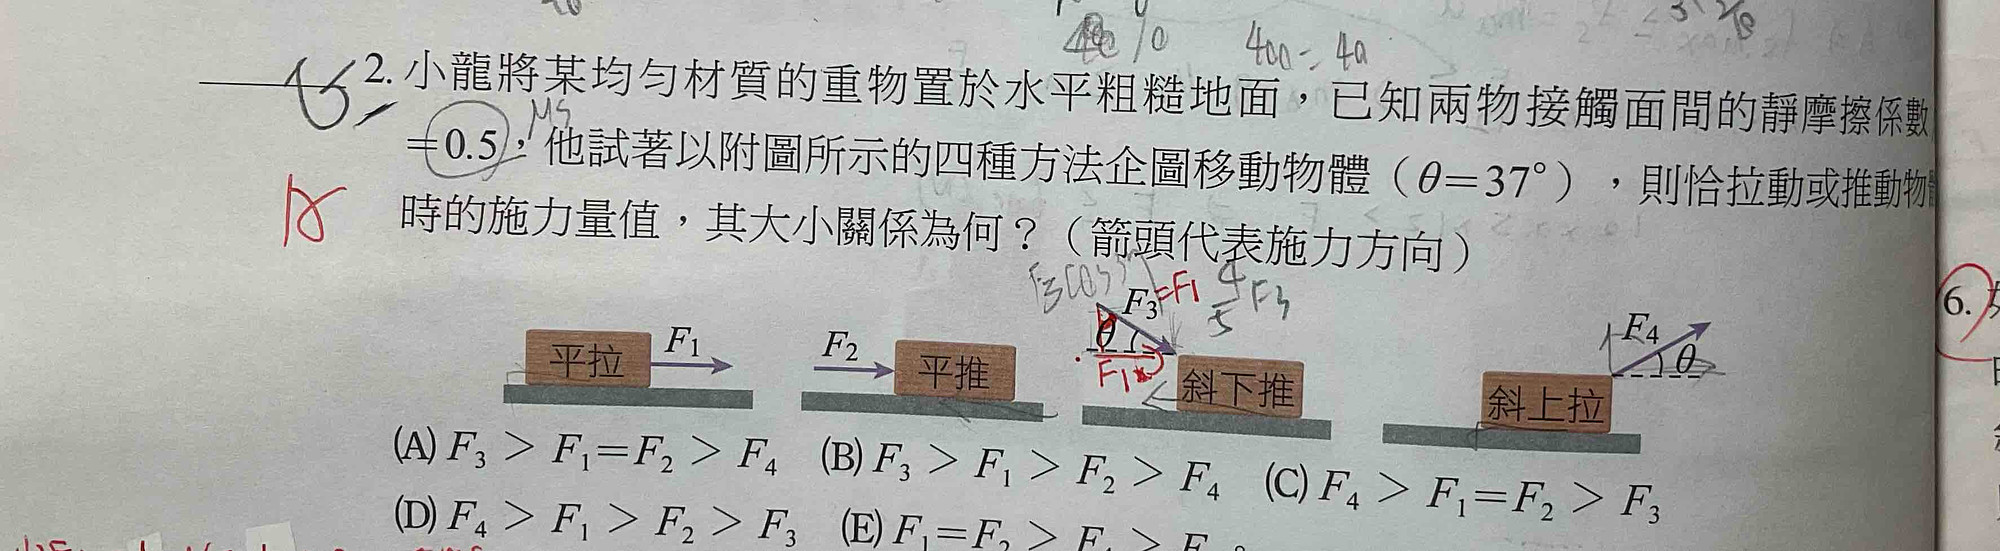 400=4a
2. 小龍將某均勻材質的重物置於水平粗糙地面，已知兩物接觸面間的靜摩擦係數
=0.5，他試著以附圖所示的四種方法企圖移動物體（θ=37°），則恰拉動或推動物體
時的施力量值，其大小關係為何？（箭頭代表施力方向）
平拉 F₁ F₂ 平推 θ F₃ =F1 4/5 F3 斜下推 斜上拉 F₄ θ
6.
(A) F₃ > F₁=F₂ > F₄ (B) F₃ > F₁ > F₂ > F₄ (C) F₄ > F₁=F₂ > F₃
(D) F₄ > F₁ > F₂ > F₃ (E) F₁=F₂ >